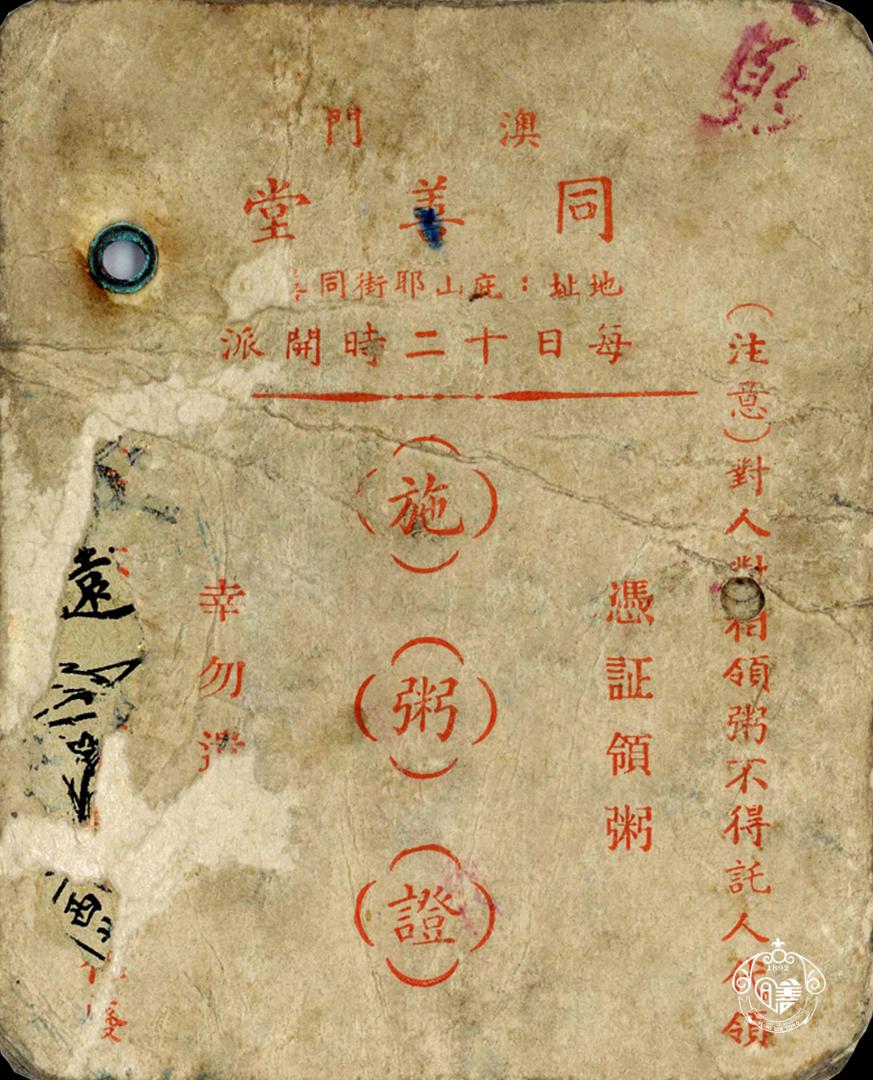 澳門
同善堂
地址:庇山耶街同善
每日十二時開派
(注意)對人對相領粥不得託人代領
憑証領粥
(施)(粥)(證)
幸勿
遠
1892
同善